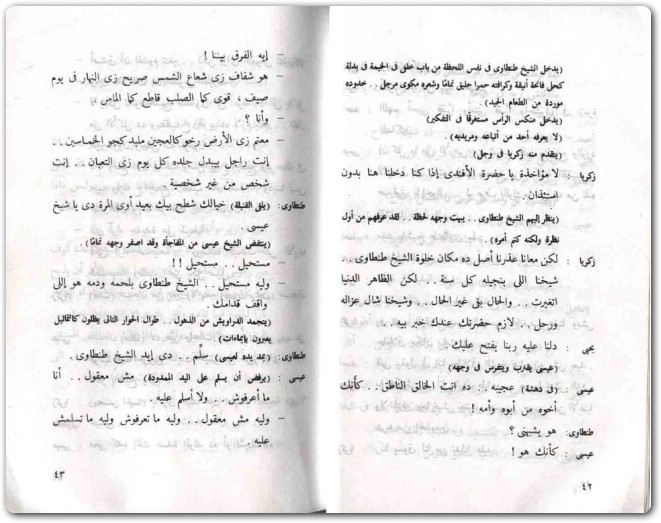 (يدخل الشيخ طنطاوى فى نفس اللحظة من باب خلفى فى الخيمة فى بدلة
كحلى فاتحة أنيقة وكرافتة حمرا حليق تماما وشعره مكوى مرجل .. خدوده
موردة من الطعام الجيد)
(يدخل منكس الرأس مستغرقا فى التفكير)
(لا يعرفه أحد من أتباعه ومريديه)
(يتقدم منه زكريا فى وجل)
زكريا : لا مؤاخذة يا حضرة الأفندى إذا كنا دخلنا هنا بدون
استئذان .
(ينظر إليهم الشيخ طنطاوى .. يبهت وجهه لحظة .. لقد عرفهم من أول
نظرة ولكنه كتم أمره)
زكريا : لكن معانا عذرنا أصل ده مكان خلوة الشيخ طنطاوى ..
شيخنا اللى بنجيله كل سنة .. لكن الظاهر الدنيا
اتغيرت .. والحال بقى غير الحال .. وشيخنا شال عزاله
ورحل .. لازم حضرتك عندك خبر بيه ..
يحيى : دلنا عليه ربنا يفتح عليك
(عيسى يقترب ويتفرس فى وجهه)
عيسى : (فى دهشة) عجيبه .. ده انت الخالق الناطق .. كأنك
أخوه من أبوه وأمه !
طنطاوى: هو يشبهنى ؟
عيسى : كأنك هو !
٤٢
– إيه الفرق بيننا !
– هو شفاف زى شعاع الشمس صريح زى النهار فى يوم
صيف ، قوى كما الصلب قاطع كما الماس .
– وأنا ؟
– معتم زى الأرض رخو كالعجين ملبد كجو الخماسين ..
إنت راجل بيبدل جلده كل يوم زى التعبان .. إنت
شخص من غير شخصية
طنطاوى: (يلقى القنبلة) خيالك شطح بيك بعيد أوى المرة دى يا شيخ
عيسى .
(ينتفض الشيخ عيسى من المفاجأة وقد اصفر وجهه تماما)
– مستحيل .. مستحيل !!
– وليه مستحيل .. الشيخ طنطاوى بلحمه ودمه هو إللى
واقف قدامك .
(يتجمد الدراويش من الذهول .. طوال الحوار التالى يظلون كالتماثيل
يعبرون بإيماءات)
طنطاوى: (يمد يده لعيسى) سلّم .. دى إيد الشيخ طنطاوى .
عيسى : (يرفض أن يسلم على اليد الممدودة) مش معقول .. أنا
ما أعرفوش .. ولا أسلم عليه .
– وليه مش معقول .. وليه ما تعرفوش وليه ما تسلمش
عليه .
٤٣